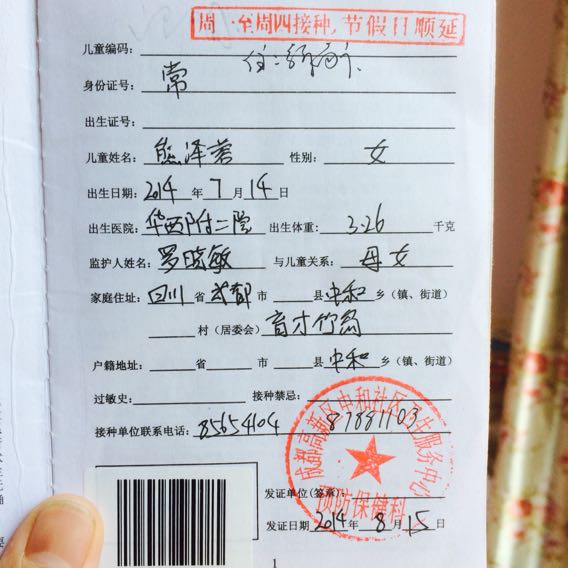 周一至周四接种,节假日顺延
儿童编码:
身份证号: 常
出生证号:
儿童姓名: 熊泽蓉 性别: 女
出生日期: 2014 年 7 月 14 日
出生医院: 华西附二院 出生体重: 3.26 千克
监护人姓名: 罗晓敏 与儿童关系: 母女
家庭住址: 四川 省 成都 市 县 中和 乡(镇、街道)
村(居委会) 育才竹岛
户籍地址: 省 市 县 中和 乡(镇、街道)
过敏史: 接种禁忌:
接种单位联系电话: 85654104 87881103
成都高新区中和社区卫生服务中心
预防保健科
发证单位(签章):
发证日期 2014 年 8 月 15 日
1